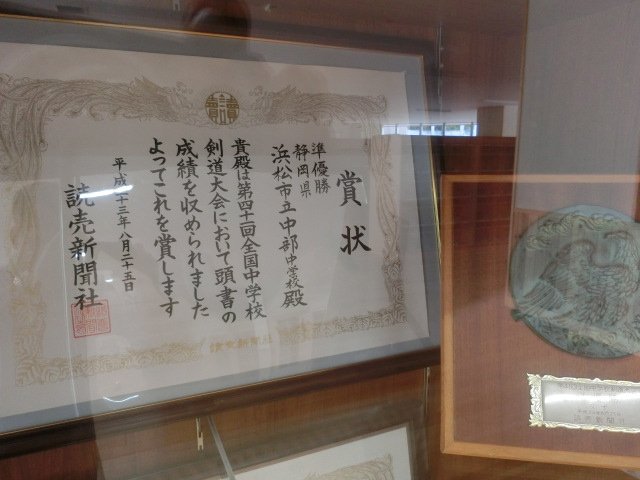 賞状
準優勝
静岡県
浜松市立中部中学校殿
貴殿は第四十一回全国中学校
剣道大会において頭書の
成績を収められました
よってこれを賞します
平成二十三年八月二十五日
読売新聞社
読売新聞社